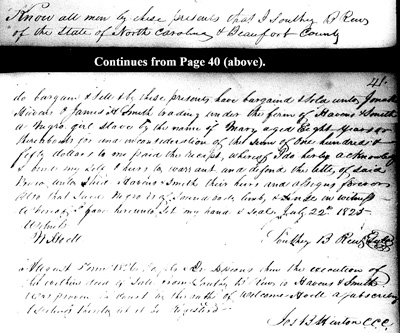 Know all men by these presents that I Southey B Rew
of the State of North Carolina & Beaufort County
Continues from Page 40 (above).
41
do bargain & Sell & by these presents, have bargained & Sold unto
Havens & James H Smith trading under the form of Havens & Smith
a Negro girl Slave by the name of Mary aged Eight years or
thereabouts for and in consideration of the Sum of One hundred &
fifty dollars to me paid the receipt, whereof I do herby acknowledge
I bind my self & heirs to warrant and defend the title, of said
Negro unto Said Havens & Smith their heirs and assigns forever
also that Said Negro is of Sound body, limb, & in witness
whereof I have hereunto Set my hand & Seal July 22nd 1825
Southey B Rew Seal
August Term 1826 the execution of
the within deed of Sale from Southey B Rew to Havens & Smith
was proven in Court by the oath of a Subscribing
let it be registered
Jos B Hinton CCC